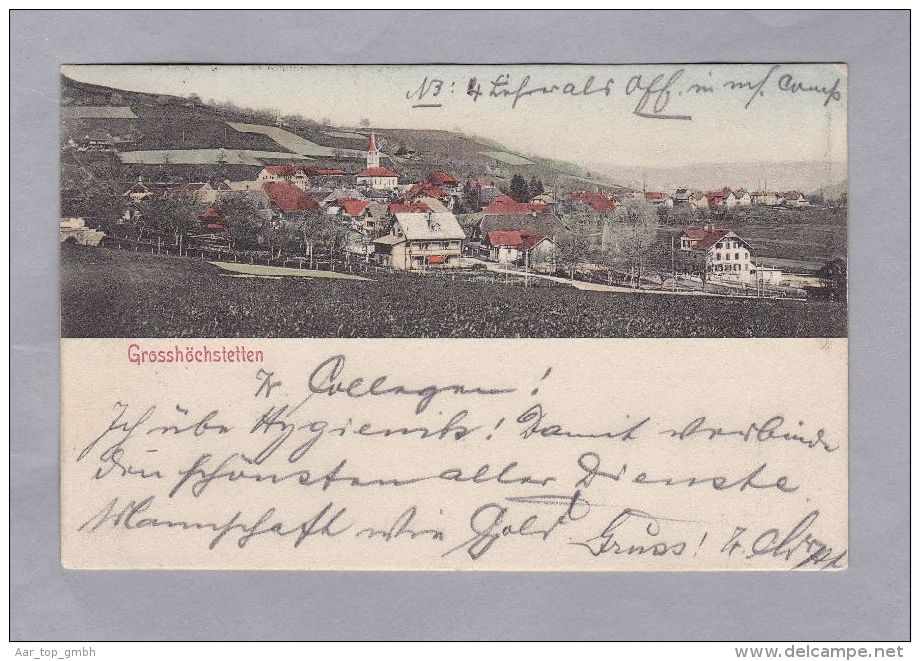 NB: 4 Lehrer als Off. in m/. Comp
Grosshöchstetten
Collegen!
Ich übe Hygienik! Damit verbinde
den schönsten aller Dienste.
Mannschaft wie Gold! Gruss!
Aar_top_gmbh
www.delcampe.net